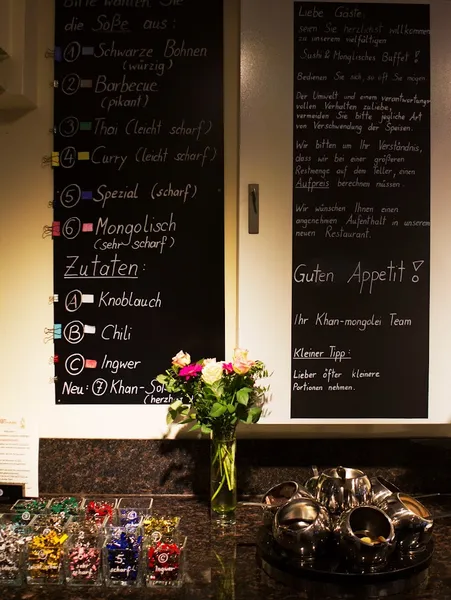 die Soße aus:
1 Schwarze Bohnen
(würzig)
2 Barbecue
(pikant)
3 Thai (leicht scharf)
4 Curry (leicht scharf)
5 Spezial (scharf)
6 Mongolisch
(sehr scharf)
Zutaten:
A Knoblauch
B Chili
C Ingwer
Neu: 7 Khan-So
(herzh
Liebe Gäste,
seien Sie herzlichst willkommen
zu unserem vielfältigen
Sushi & Mongolisches Buffet!
Bedienen Sie sich, so oft Sie mögen
Der Umwelt und einem verantwortungs-
vollen Verhalten zuliebe,
vermeiden Sie bitte jegliche Art
von Verschwendung der Speisen.
Wir bitten um Ihr Verständnis,
dass wir bei einer größeren
Restmenge auf dem Teller, einen
Aufpreis berechnen müssen.
Wir wünschen Ihnen einen
angenehmen Aufenthalt in unserem
neuen Restaurant.
Guten Appetit!
Ihr Khan-mongolei Team
Kleiner Tipp:
Lieber öfter kleinere
Portionen nehmen.
5
scharf
C
Ingwer